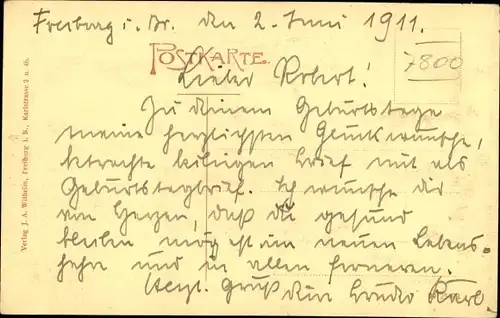 Freiburg i. Br. den 2. Juni 1911.
POSTKARTE.
7800
Lieber Robert!
Zu deinem Geburtstage
meine herzlichsten Glückwünsche,
betrachte beiligen Brief mit als
Geburtstagbrief. Ich wünsche dir
von Herzen, daß du gesund
bleiben mögest im neuen Lebens-
jahre und in allen ferneren.
Herzl. Gruß dein Bruder Karl
Verlag J. A. Wilhelm, Freiburg i. B., Karlstrasse 2 u. 46.